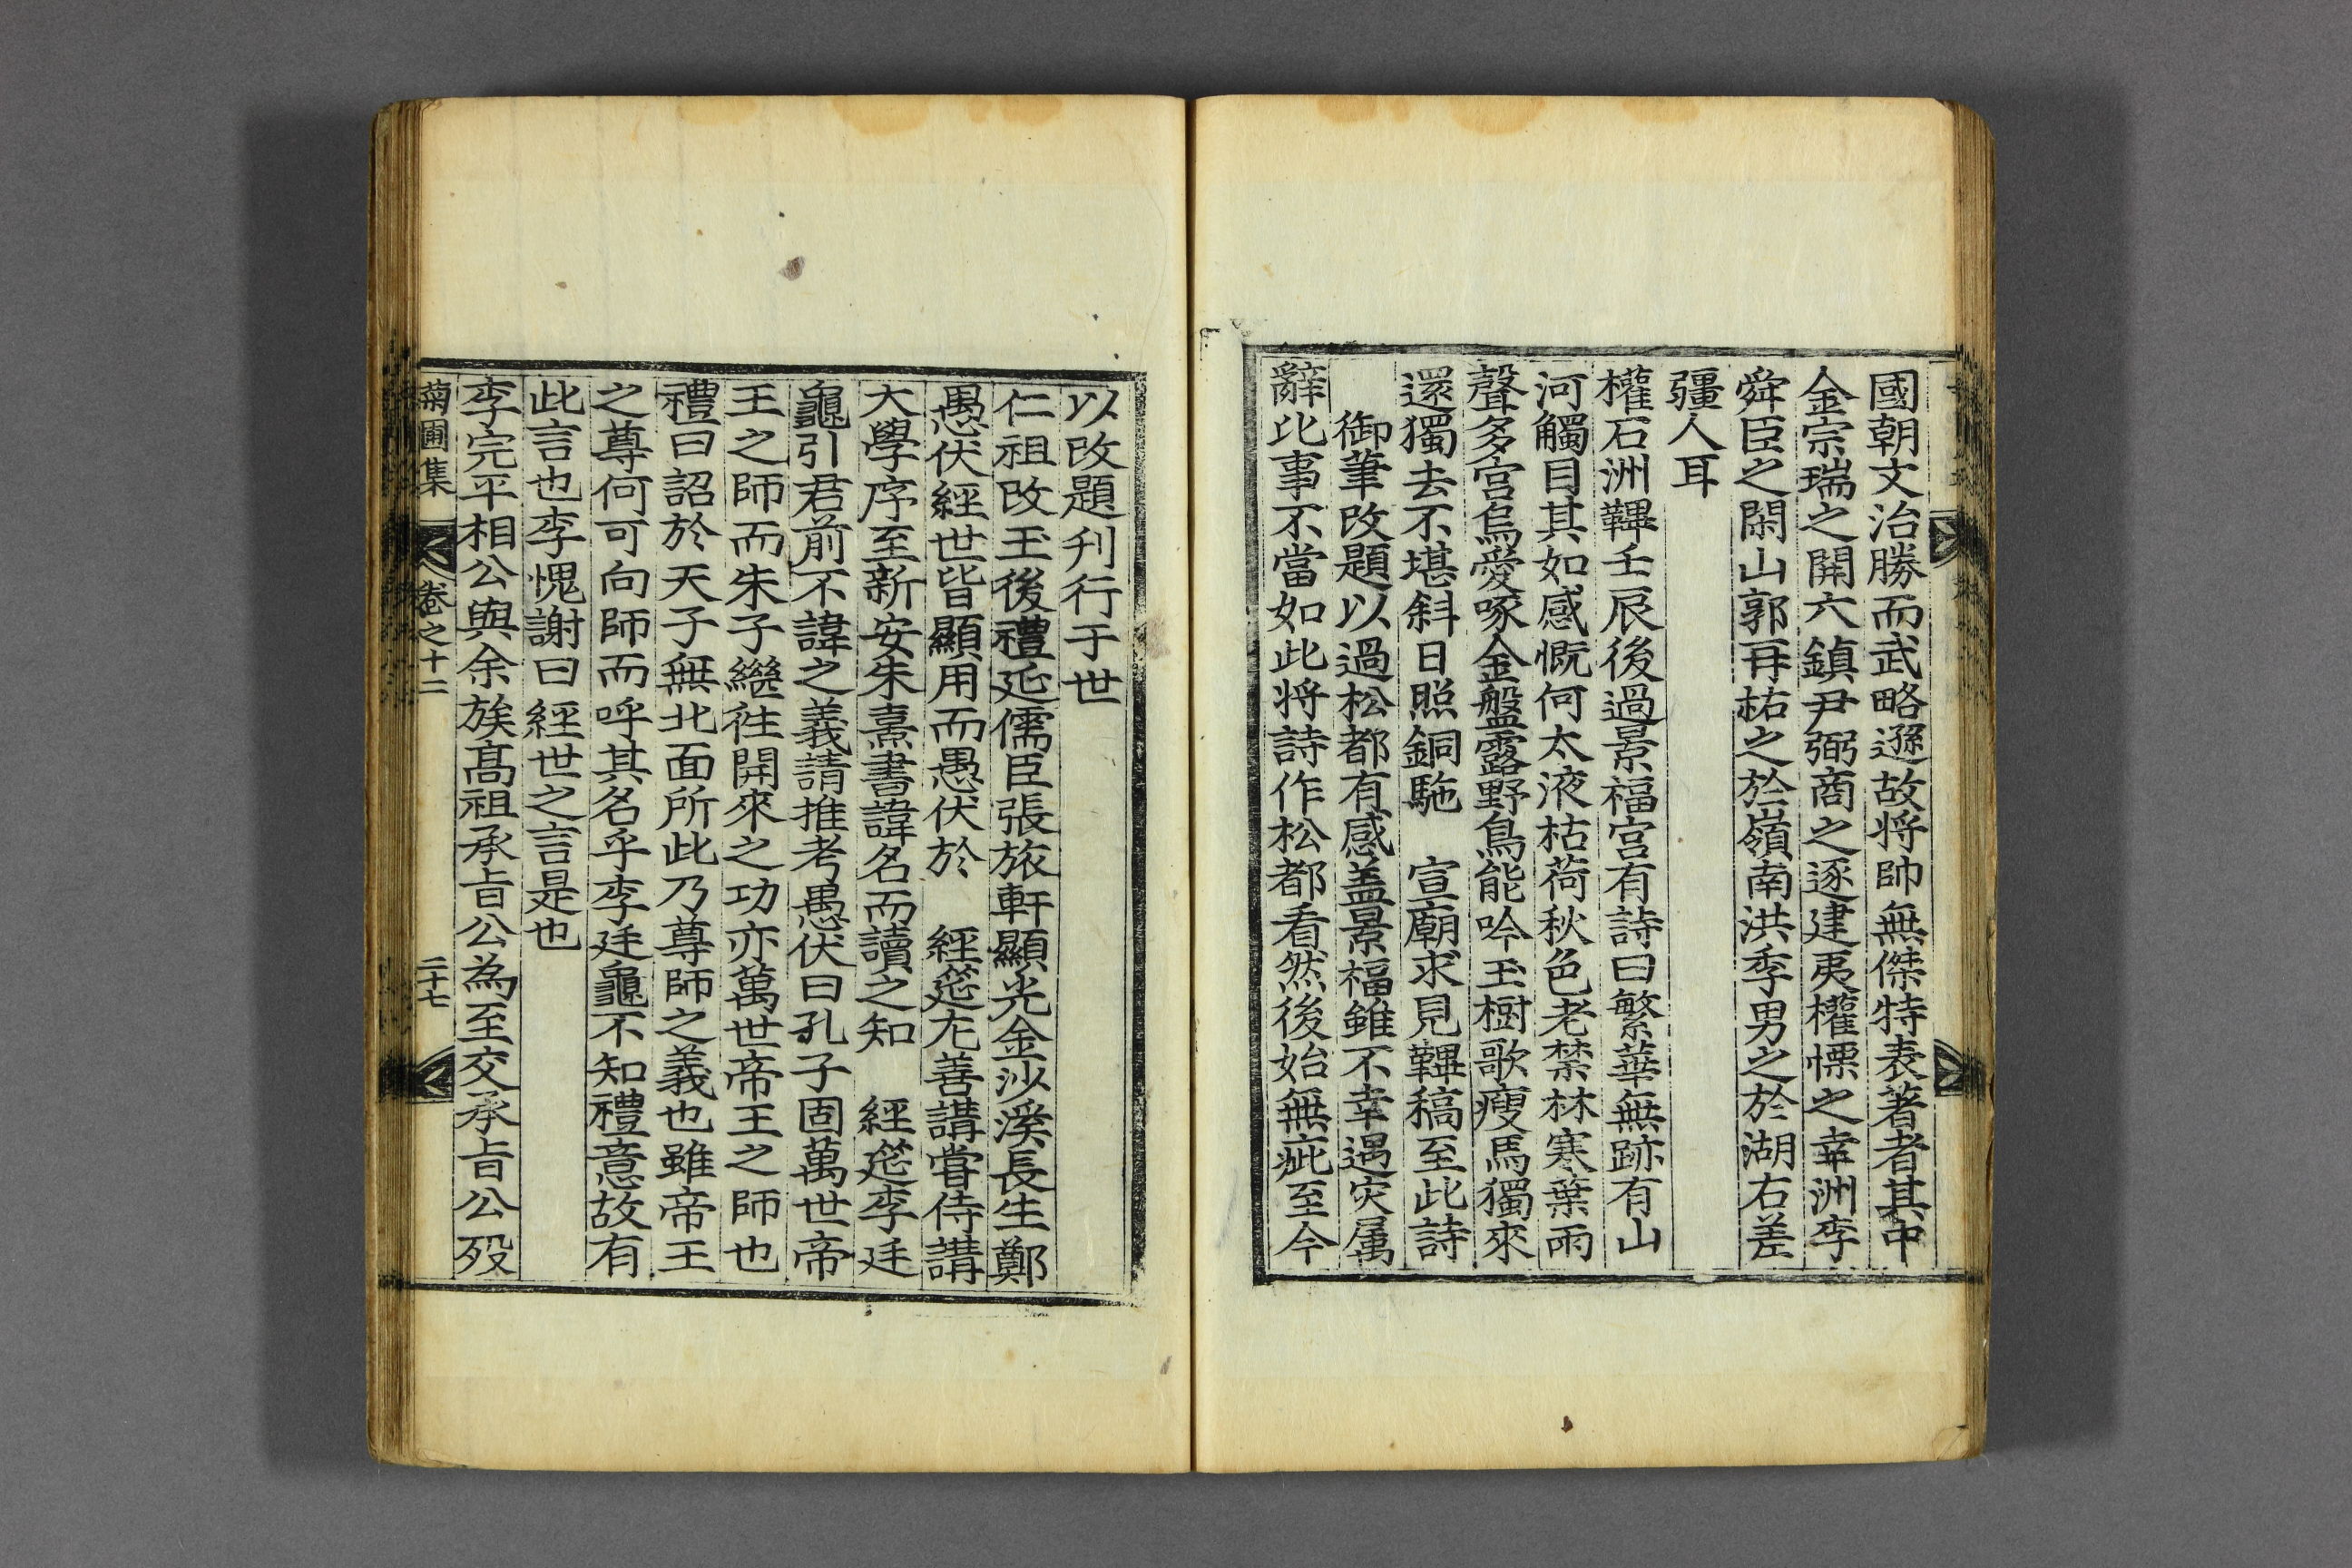 國朝文治勝而武略遜故将帥無傑特表著者其中
金宗瑞之開六鎮尹弼商之逐建夷權慄之幸洲李
舜臣之閑山郭再祐之於嶺南洪季男之於湖右差
彊人耳
權石洲韠壬辰後過景福宫有詩曰繁華無跡有山
河觸目其如感慨何太液枯荷秋色老禁林寒葉雨
聲多宫烏愛啄金盤露野鳥能吟玉樹歌瘦馬獨來
還獨去不堪斜日照銅駞　宣廟求見韠稿至此詩
御筆改題以過松都有感盖景福雖不幸遇灾属
辭比事不當如此将詩作松都看然後始無疵至今
以改題刋行于世
仁祖改玉後禮延儒臣張旅軒顯光金沙溪長生鄭
愚伏經世皆顯用而愚伏於　經筵尤善講嘗侍講
大學序至新安朱熹書諱名而讀之知　經筵李廷
龜引君前不諱之義請推考愚伏曰孔子固萬世帝
王之師而朱子繼徃開來之功亦萬世帝王之師也
禮曰詔於天子無北面所此乃尊師之義也雖帝王
之尊何可向師而呼其名乎李廷龜不知禮意故有
此言也李愧謝曰經世之言是也
李完平相公與余族髙祖承旨公為至交承旨公殁
菊圃集　卷之十二　二十七